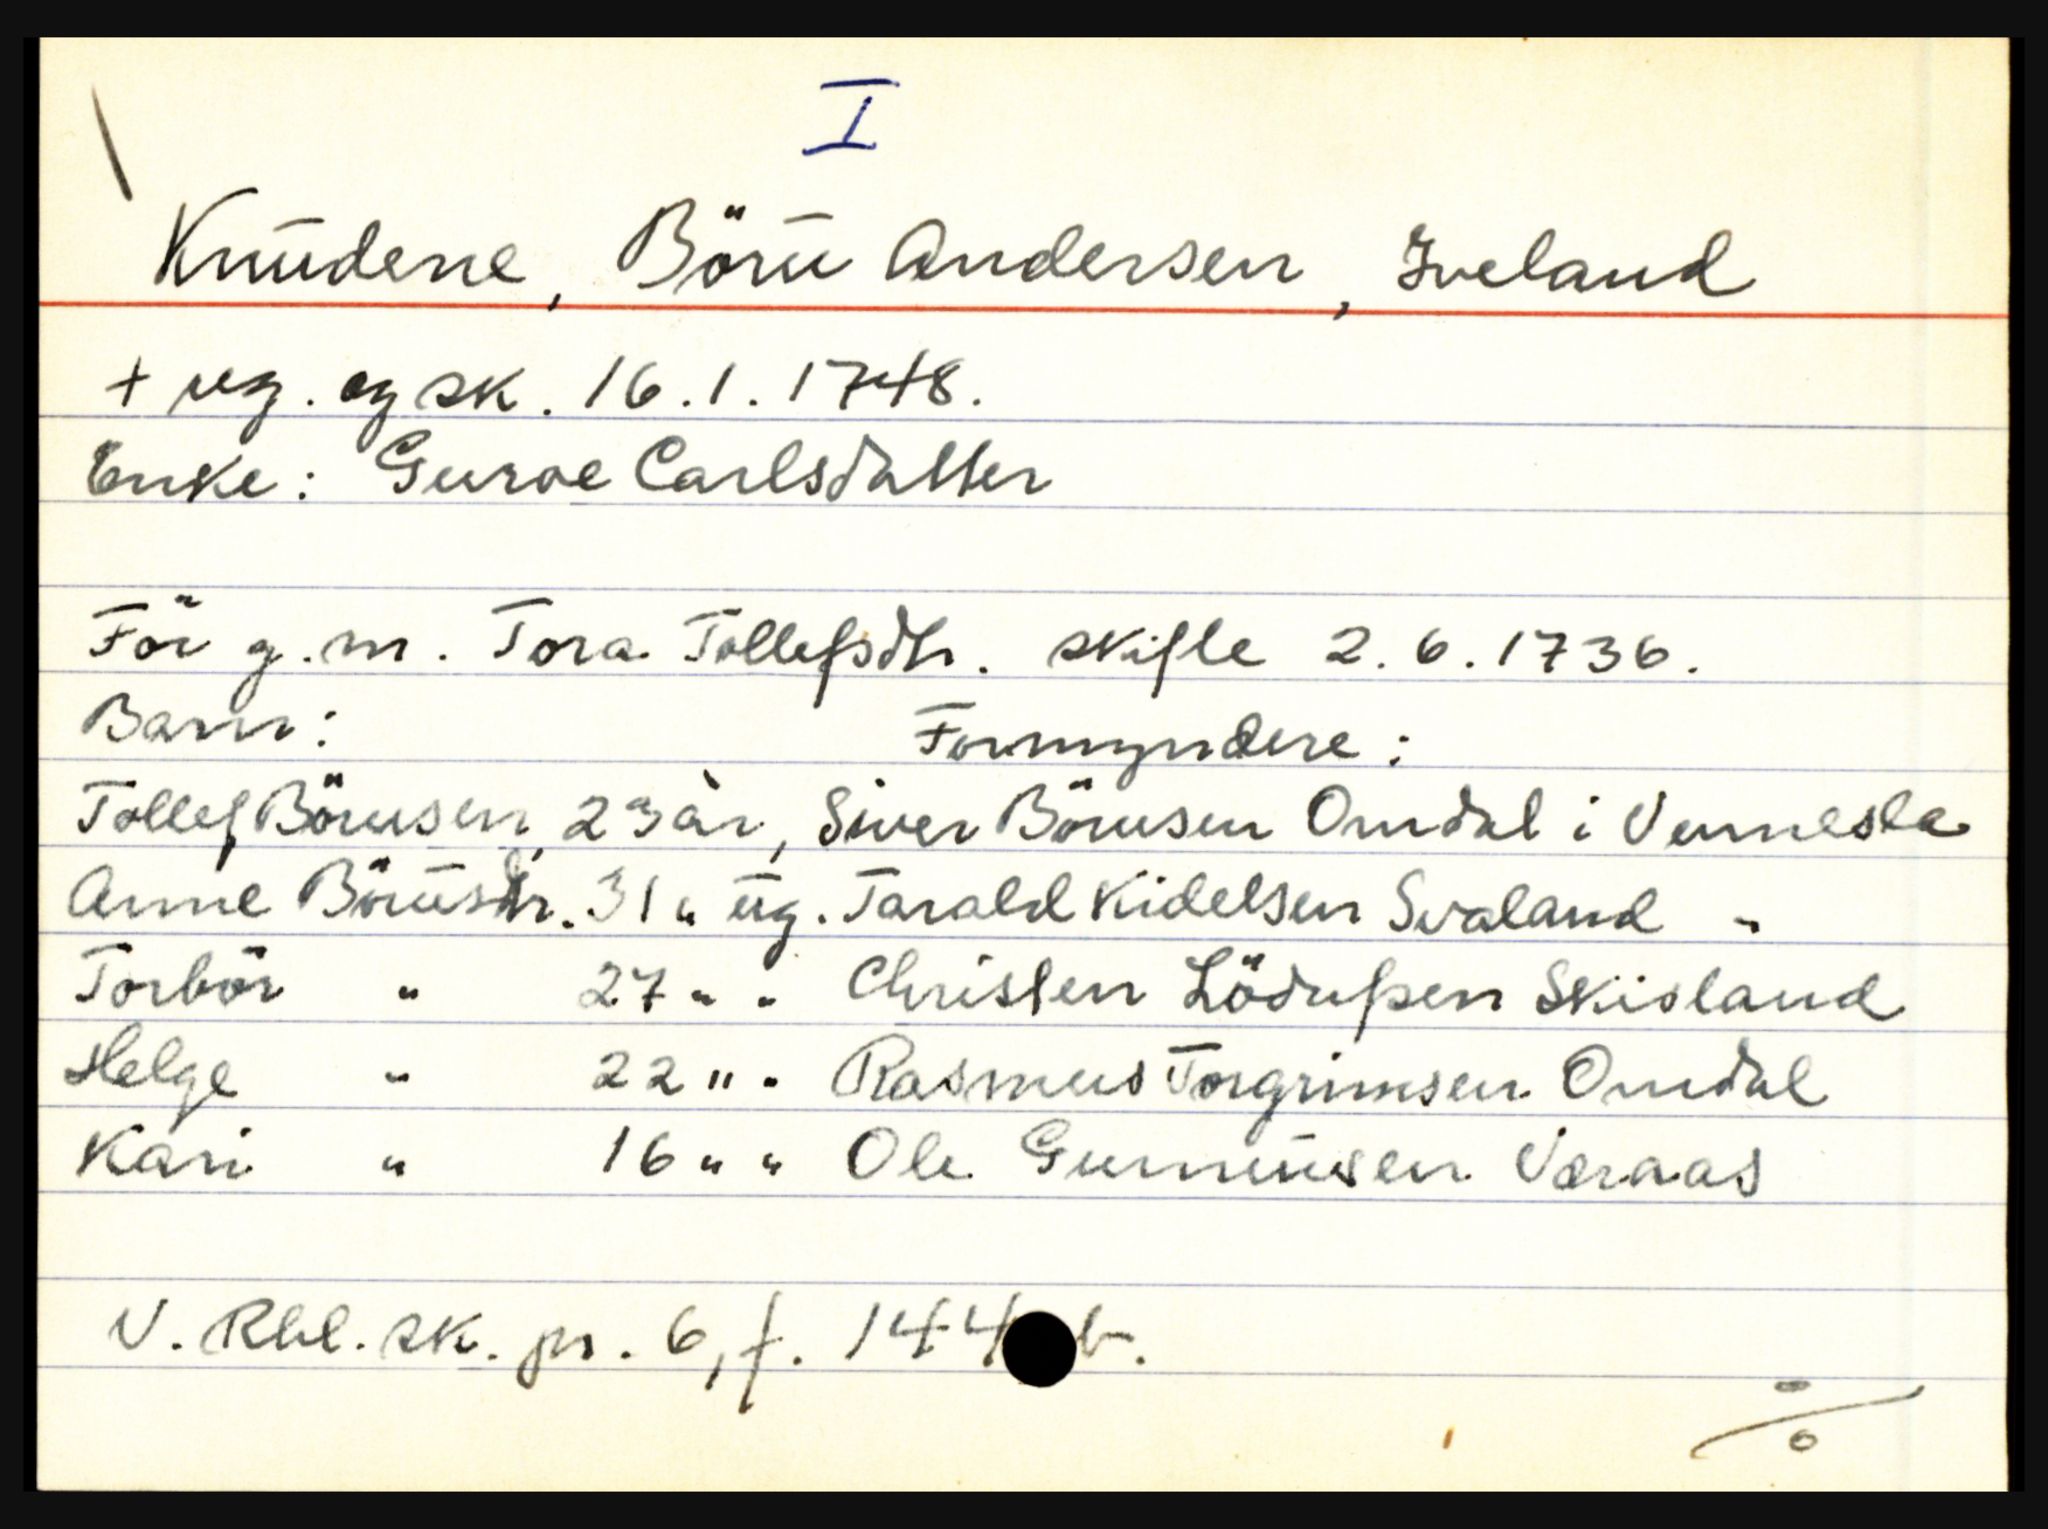 I
Knudene, Böru Andersen, Iveland
+ reg. og sk. 16.1.1748.
Enke: Guroe Carlsdatter
För g.m. Tora Tollefsdtr. skifte 2.6.1736.
Barn: Formyndere:
Tollef Börusen, 23 år, Siver Börusen Omdal i Vennesla
Anne Börusdtr. 31 " ug. Tarald Kidelsen Svaland "
Torbör " 27 " " Christen Lödufsen Skisland
Helge " 22 " " Rasmus Torgrimsen Omdal
Kari " 16 " " Ole Gunnusen Væraas
V. Rbl. sk. pr. 6, f. 144 b.